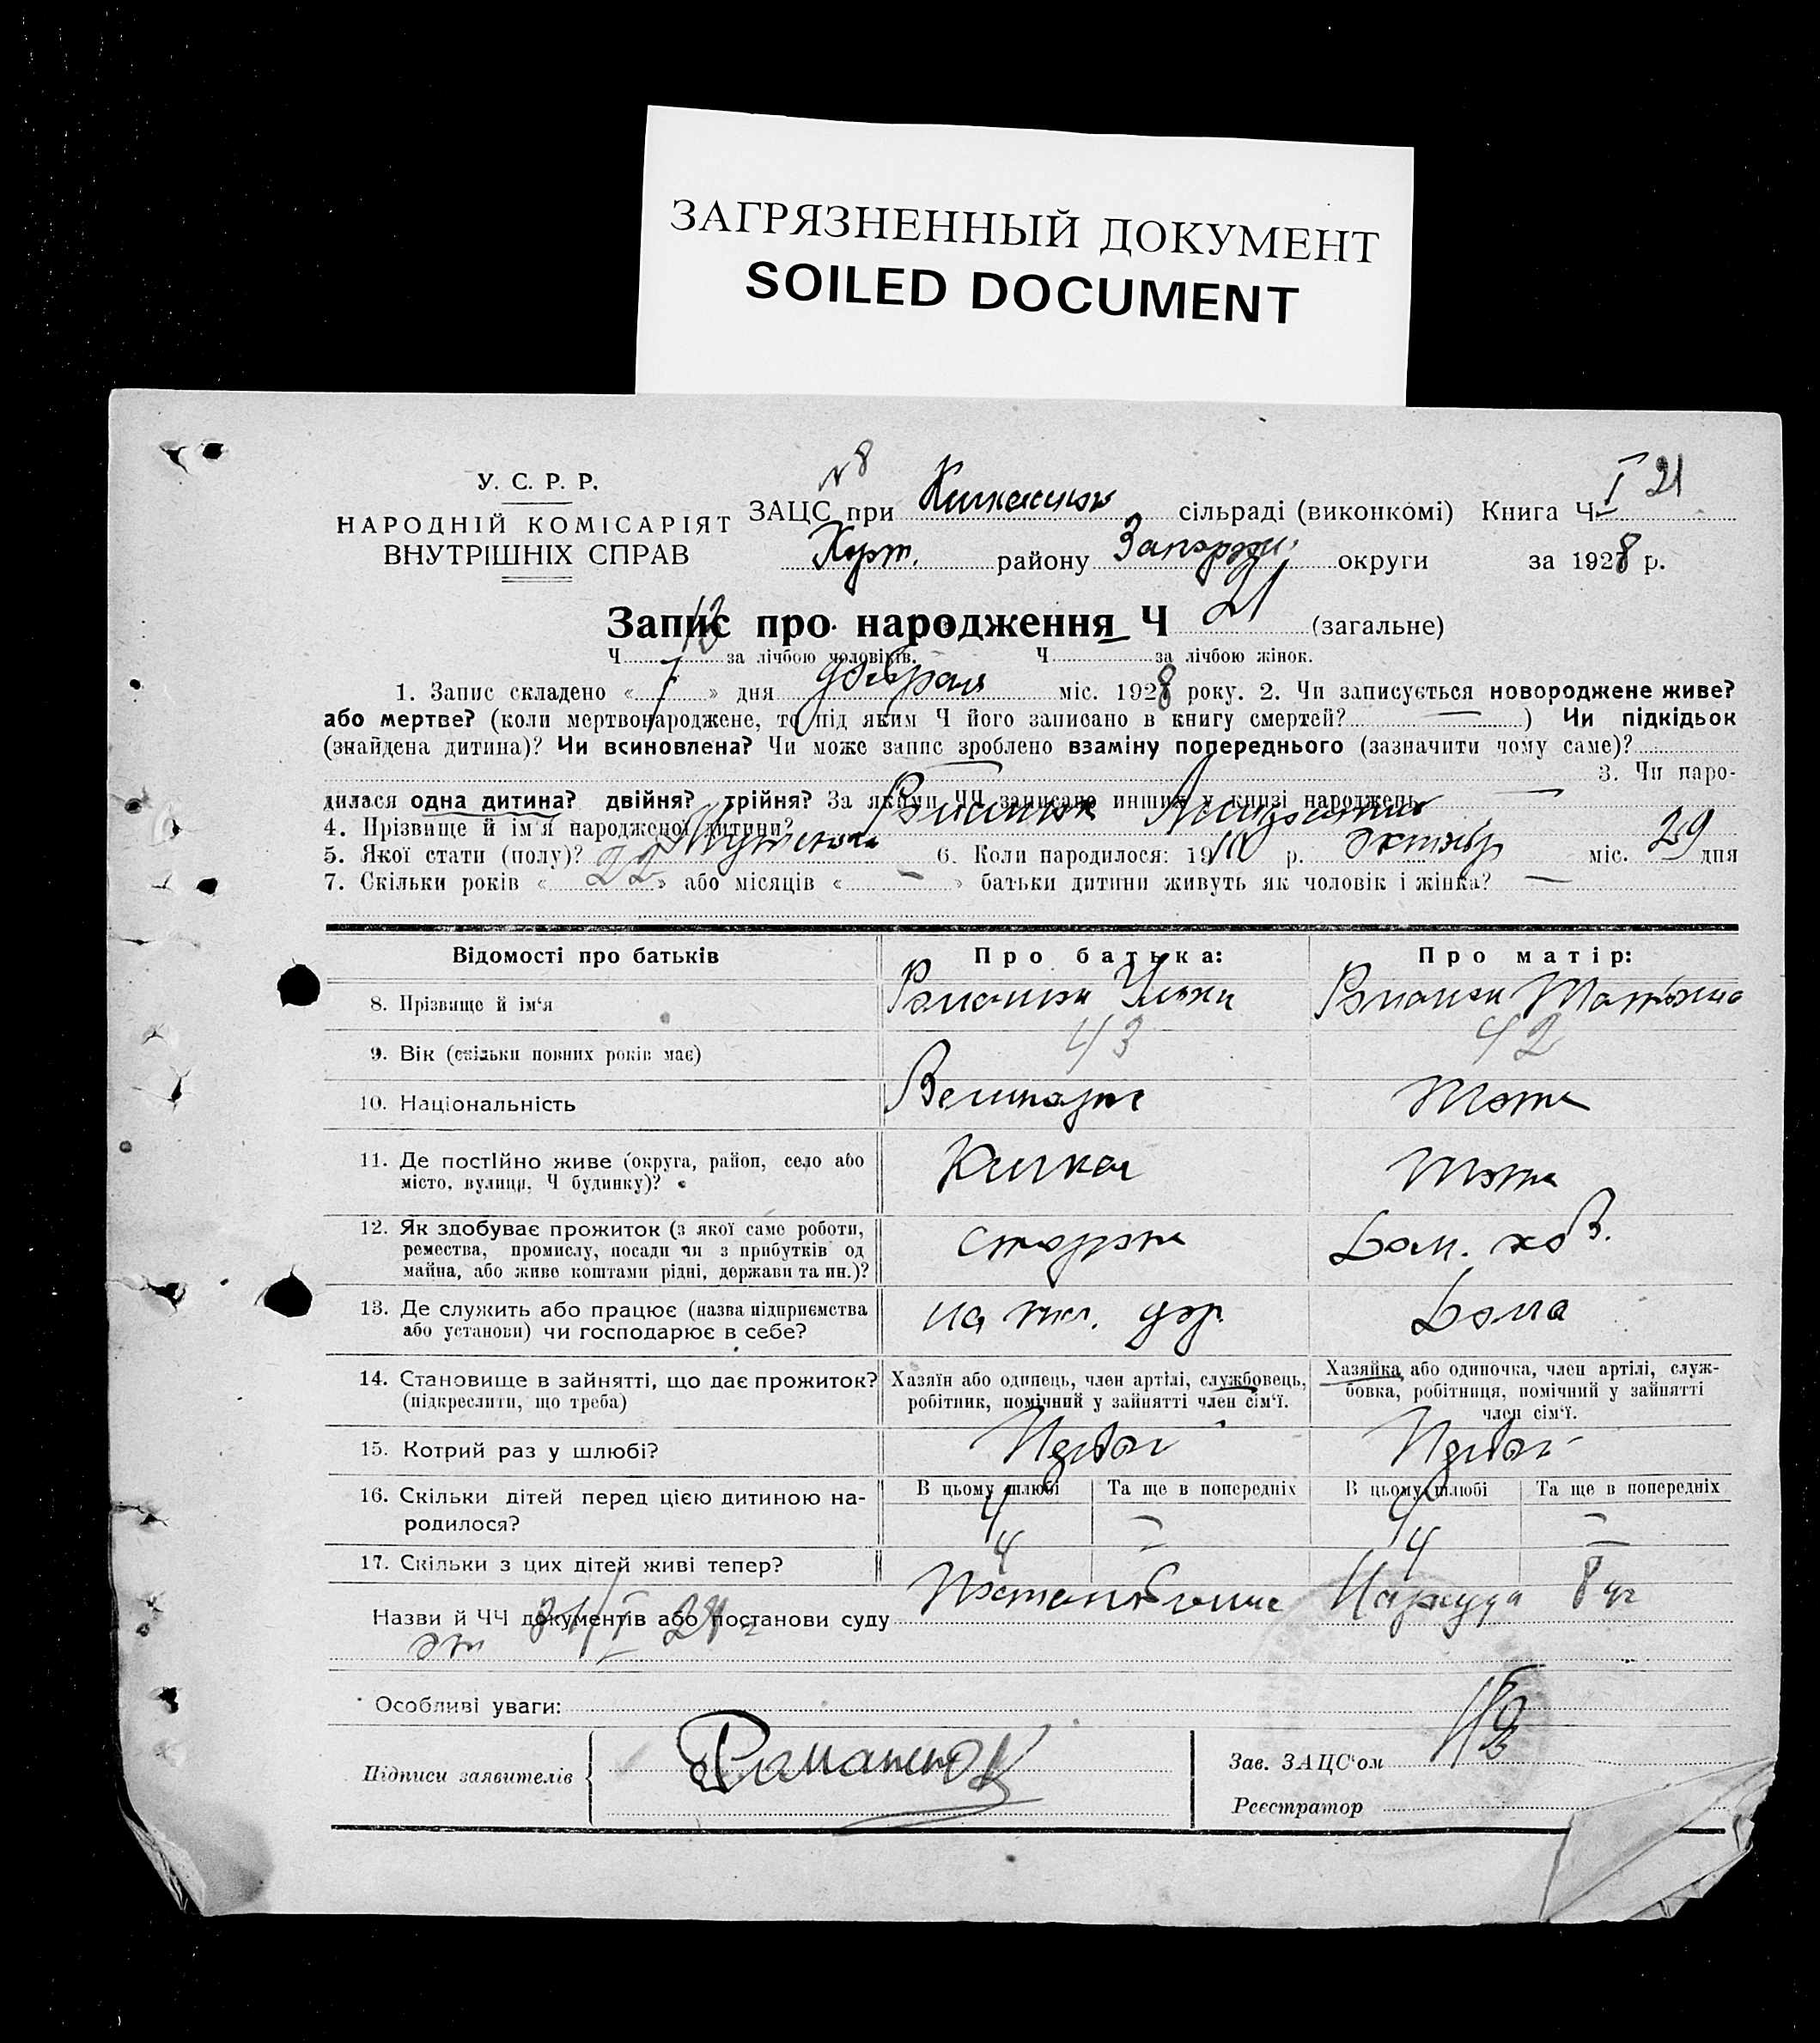 ЗАГРЯЗНЕННЫЙ ДОКУМЕНТ
SOILED DOCUMENT
У. С. Р. Р.
НАРОДНІЙ КОМІСАРІЯТ
ВНУТРІШНІХ СПРАВ
N 8
ЗАЦС при сільраді (виконкомі) Книга Ч I 21
Хорт. району Запорож. округи за 1928 р.
Запис про народження Ч 21 (загальне)
Ч 13 за лічбою чоловіків. Ч за лічбою жінок.
1. Запис складено « 7 » дня февраля міс. 1928 року. 2. Чи записується новороджене живе?
або мертве? (коли мертвонароджене, то під яким Ч його записано в книгу смертей? — ) Чи підкідьок
(знайдена дитина)? Чи всиновлена? Чи може запис зроблено взаміну попереднього (зазначити чому саме)?
3. Чи наро-
дилася одна дитина? двійня? трійня? За якими ЧЧ записано инших у книзі народжень —
4. Прізвище й ім'я народженої дитини? Романюк
5. Якої стати (полу)? Мужской 6. Коли народилося: 1910 р. Октябр міс. 29 дня
7. Скільки років « 22 » або місяців « — » батьки дитини живуть як чоловік і жінка? —
Відомості про батьків Про батька: Про матір:
8. Прізвище й ім'я Романюк Илько Романюк Татьяна
9. Вік (скільки повних років має) 43 42
10. Національність Тоже
11. Де постійно живе (округа, район, село або Кичкас Тоже
місто, вулиця, Ч будинку)?
12. Як здобуває прожиток (з якої саме роботи, сторож Дом. хоз.
ремества, промислу, посади чи з прибутків од
майна, або живе коштами рідні, держави та ин.)?
13. Де служить або працює (назва підприємства на жел. дор. Дома
або установи) чи господарює в себе?
14. Становище в зайнятті, що дає прожиток? Хазяїн або одинець, член артілі, службовець, Хазяйка або одиночка, член артілі, служ-
(підкреслити, що треба) робітник, помічний у зайнятті член сім'ї. бовка, робітниця, помічний у зайнятті
член сім'ї.
15. Котрий раз у шлюбі? Первой Первой
16. Скільки дітей перед цією дитиною на- В цьому шлюбі Та ще в попередніх В цьому шлюбі Та ще в попередніх
родилося? 4 — 4 —
17. Скільки з цих дітей живі тепер? 4 — 4 —
Назви й ЧЧ документів або постанови суду Постановление Нарсуда 8 уч
от 31/I 28 г
Особливі уваги:
Підписи заявителів Романюк Зав. ЗАЦС'ом
Реєстратор